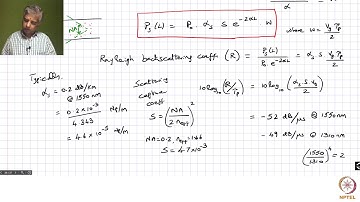 NA
P_s(L) = P_o α_s S e^{-2αL} W
where W = v_g T_p / 2
α
Rayleigh backscattering coeff (R) = P_s(L) / P_o e^{-2αL} = α_s S v_g T_p / 2
Typically,
α_s = 0.2 dB/km @ 1550 nm
= 0.2 × 10^{-3} / 4.343 Np/m
= 4.6 × 10^{-5} Np/m
Scattering capture coeff
S = (NA / 2 n_eff)^2
NA = 0.2, n_eff = 1.46
S = 4.7 × 10^{-3}
10 log_{10} (R/T_p) = 10 log_{10} (α_s S v_g / 2)
= -52 dB/μs @ 1550 nm
-49 dB/μs @ 1310 nm
(1550/1310)^4 = 2
NPTEL